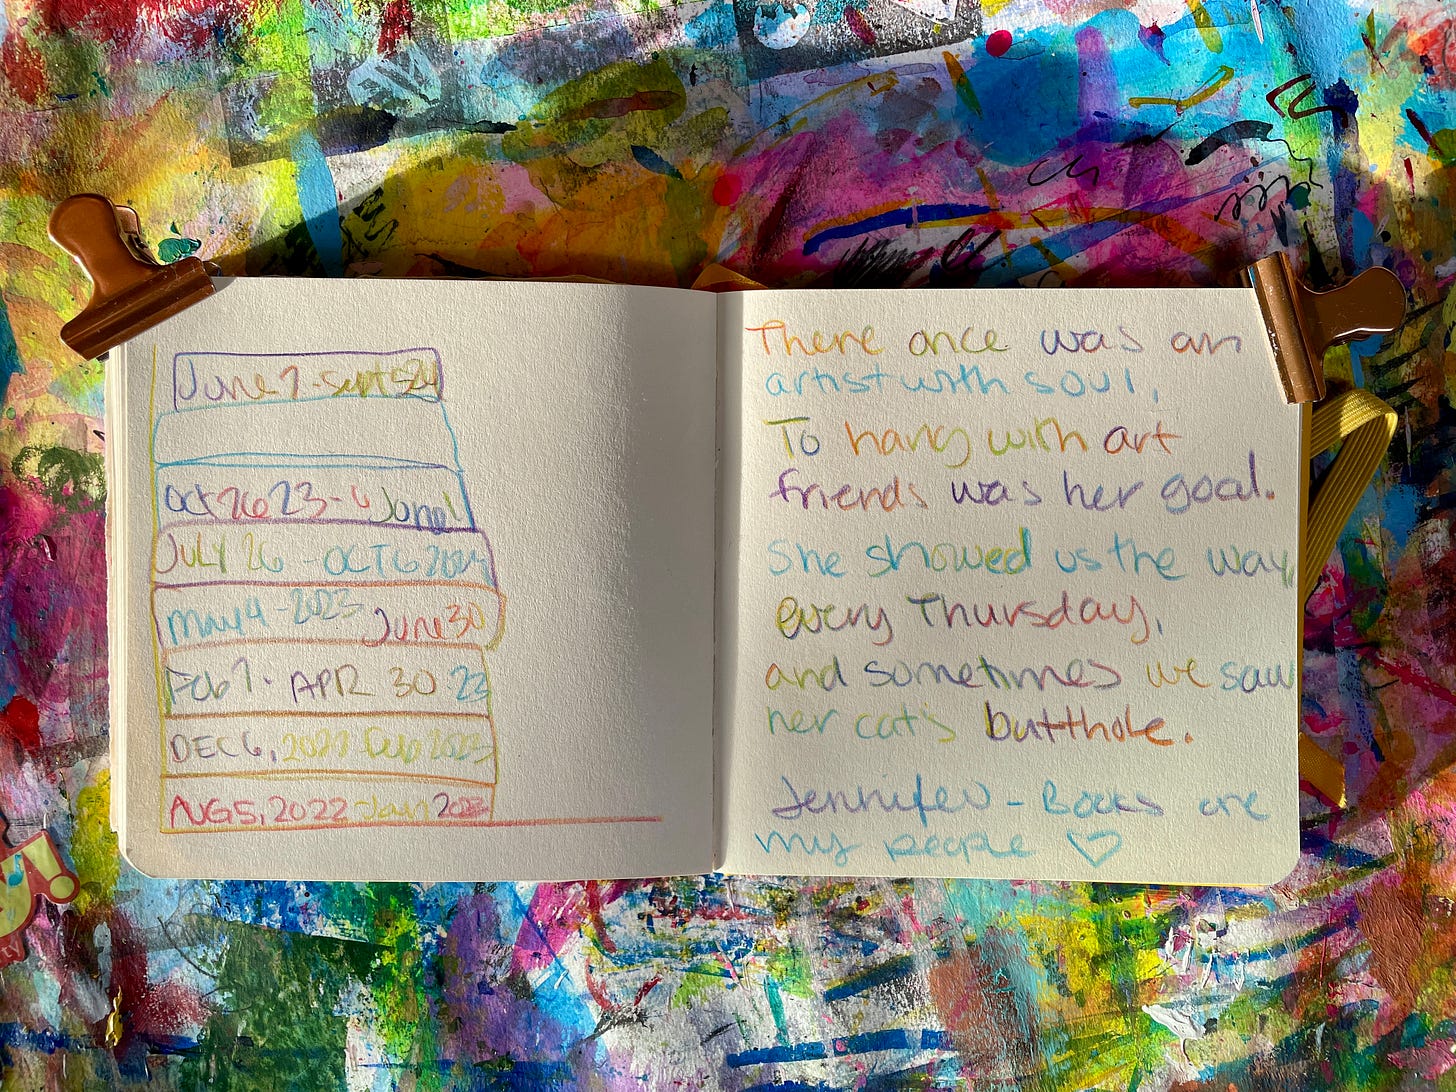 June 7 - Sept 5 24
Oct 26 23 - June
JULY 26 - OCT 6 2023
May 9 - 2023 June 30
Feb 7 - APR 30 23
DEC 6, 2022 Feb 2023
AUG 5, 2022 - Jan 2023
There once was an
artist with soul,
To hang with art
friends was her goal.
She showed us the way,
every Thursday,
and sometimes we saw
her cat's butthole.
Jennifer - Books are
my people